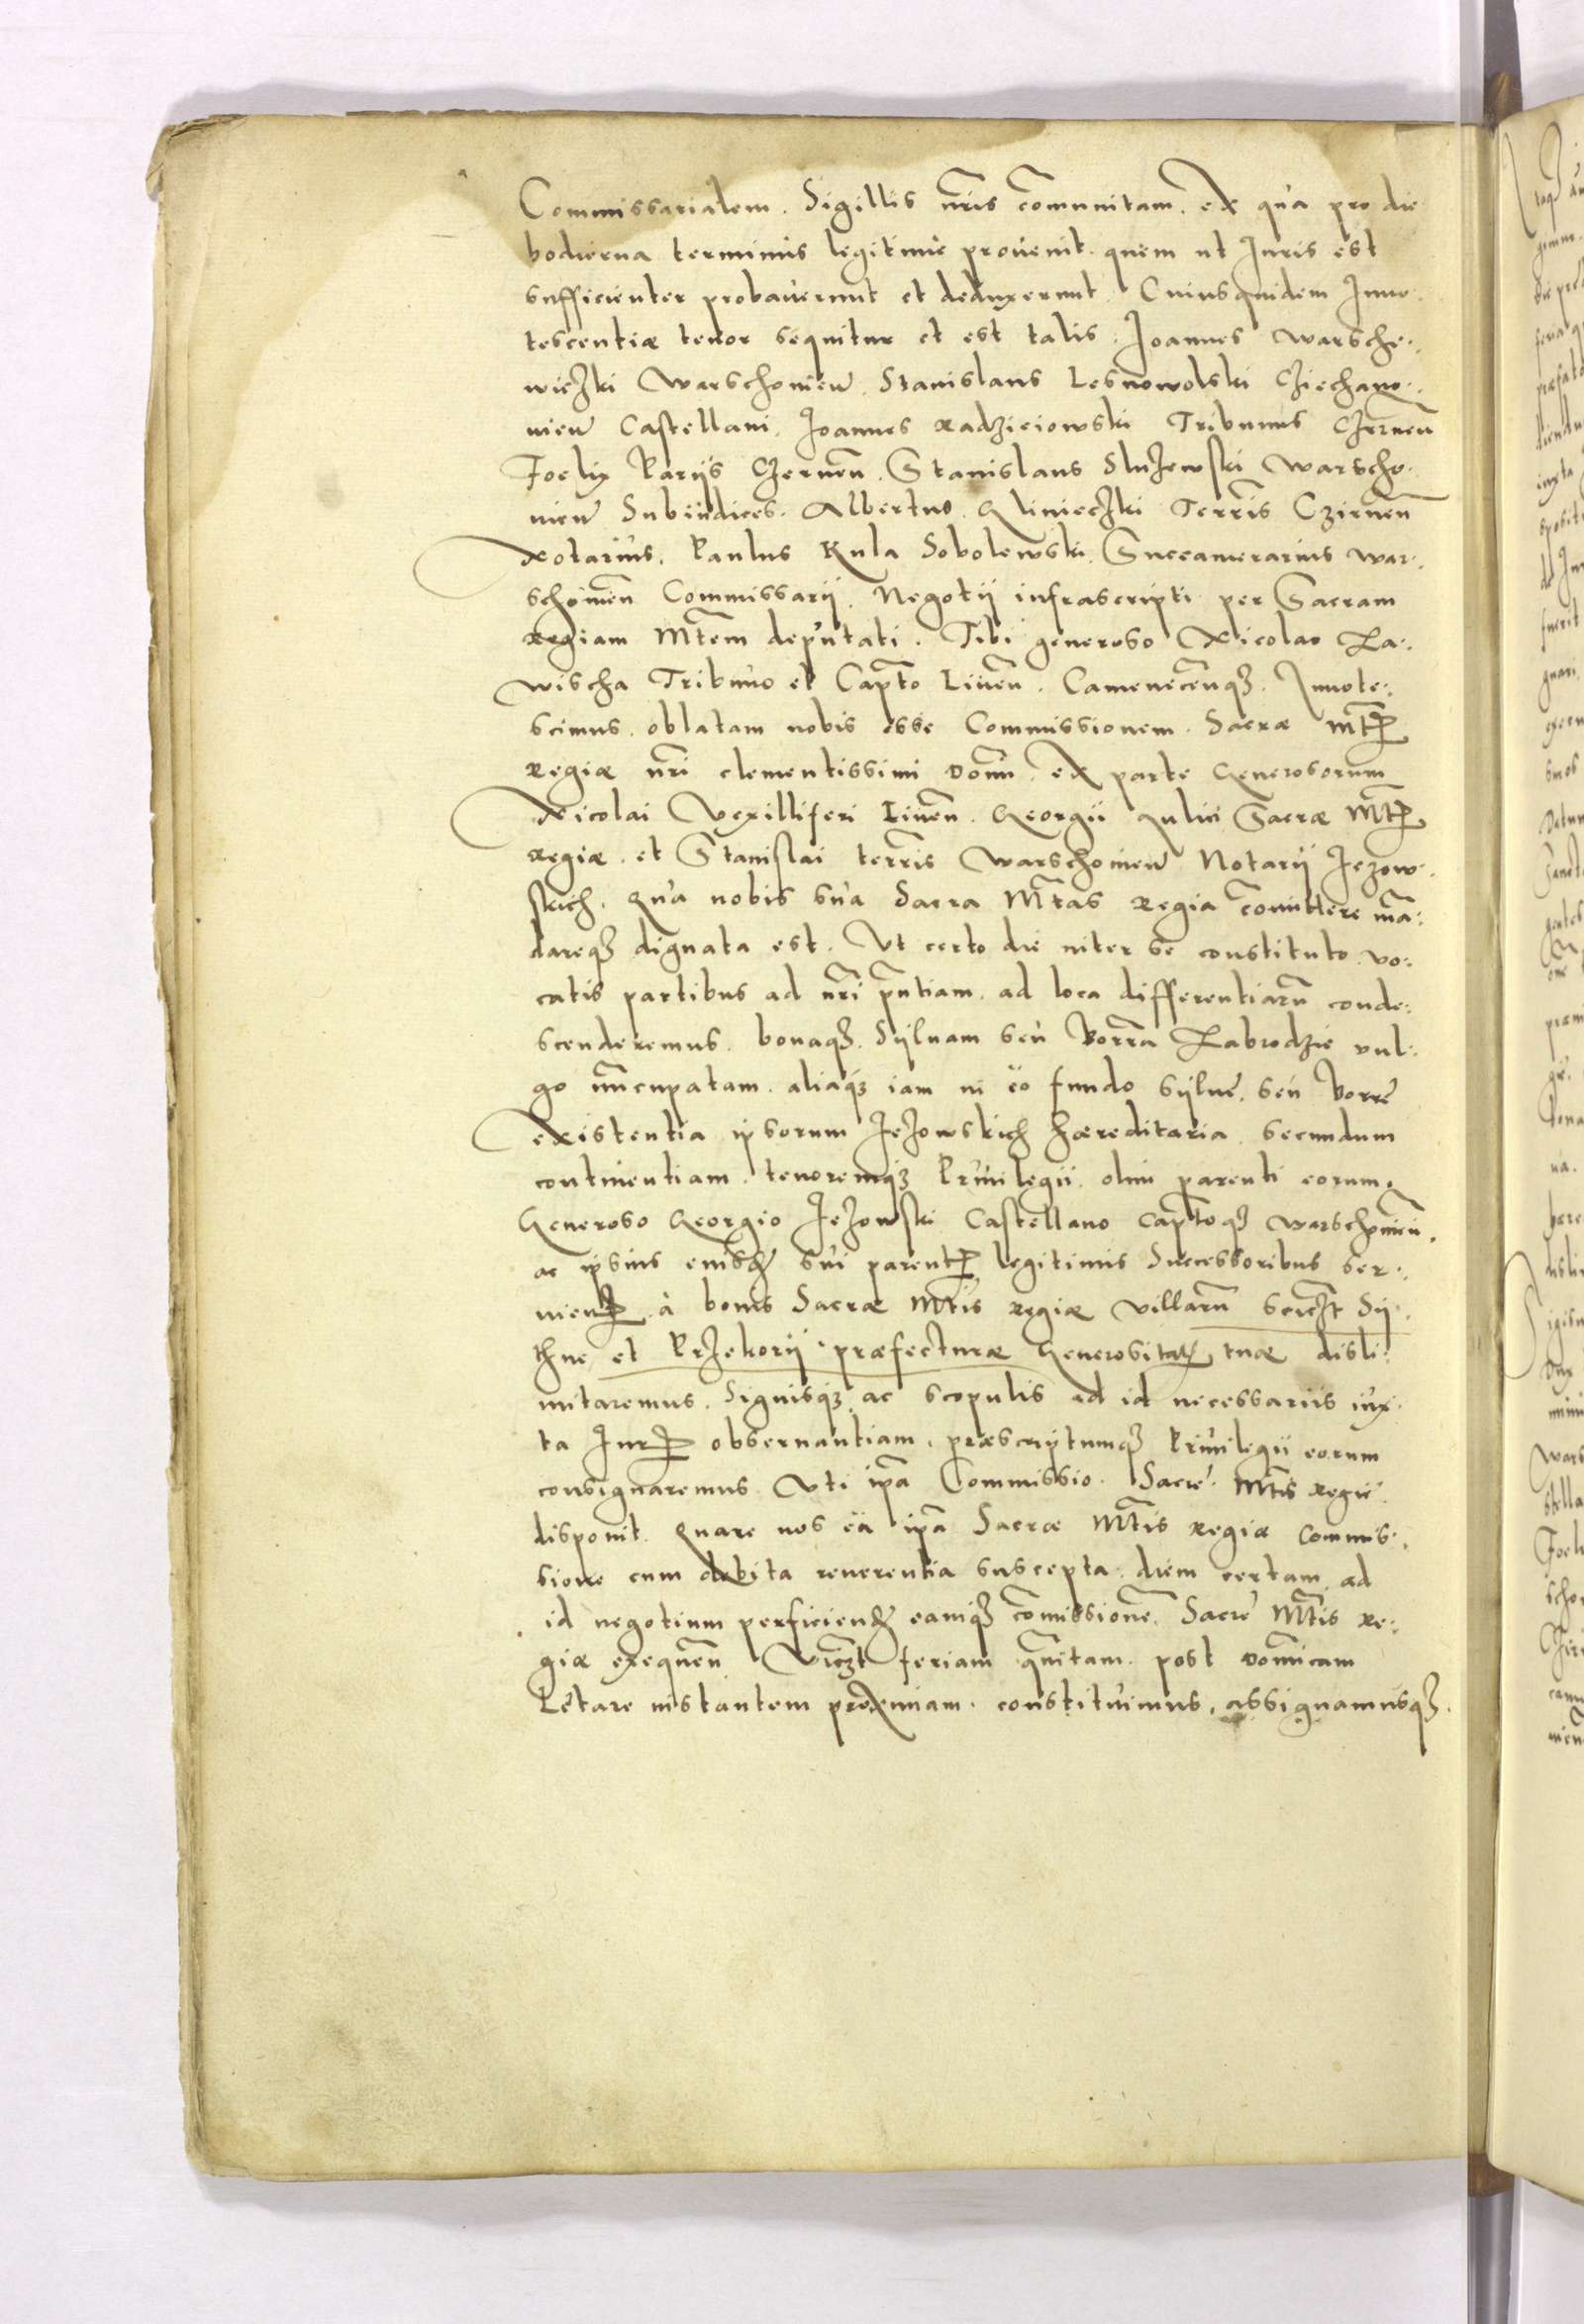 Commissarialem. Sigillis nr̃is cõmunitam. ex qua pro die
hodierna terminus legitime prouenit. quem ut Juris est
sufficienter probauerunt et deduxerunt. Cuiusquidem Inno-
tescentiæ tenor sequitur et est talis. Joannes Warsche-
wiczki Warschouieñ Stanislaus Lesnowolski Cziechano-
uieñ Castellani. Joannes Radzieiowski Tribunus Czerneñ
Foelix Parys Czerneñ. Stanislaus Sluzewski Warscho-
uieñ Subiudices. Albertus Glinieczki Terr̃is Czirneñ
Notarius. Paulus Kula Sobolewski Succamerarius War-
schouieñ Commissarij. Negotij infrascripti per Sacram
Regiam Mt̃em deputati. Tibi generoso Nicolao La-
wischa Tribuno et Capt̃o Liueñ. Camenecenqꝫ. Innote-
scimus. oblatam nobis esse Commissionem. Sacræ Mt̃is
Regiæ nr̃i clementissimi Domi. ex parte Generosorum
Nicolai Vexilliferi Liueñ. Georgii Aulici Sacræ Mt̃is
Regiæ. et Stanislai terr̃is Warschouieñ Notarij Jezow-
skich. Qua nobis sua Sacra Mt̃as Regia cõmittere mã-
dareqꝫ dignata est. Ut certo die inter se constituto uo-
catis partibus ad nr̃i pñtiam. ad loca differentiarũ conde-
scenderemus. bonaqꝫ. Syluam seu Borrã Labrodzie uul-
go nũcupatam. aliaqꝫ iam in eo fundo sylue. seu Borre
existentia ipsorum Jezowskich hæreditaria secundum
continentiam. tenoremqꝫ Priuilegii. olim parenti eorum.
Generoso Georgio Jezowski Castellano Capt̃oqꝫ Warschouieñ.
ac ipsius eiusqꝫ sui parentis legitimis Successoribus ser-
uientis. à bonis Sacræ Mt̃is Regiæ villarũ scilicet Sy-
thne et Przekory præfecturæ Generositatis tuæ disli-
mitaremus. Signisqꝫ. ac scopulis ad id necessariis iux-
ta Juris obseruantiam. præscriptumqꝫ Priuilegii eorum
consignaremus. Uti ip̃a Commissio. Sacre Mt̃is Regie
disponit. Quare nos ea ip̃a Sacræ Mt̃is Regiæ Commis-
sione cum debita reuerentia suscepta. diem certam ad
id negotium perficiend. eamqꝫ cõmissionẽ. Sacre Mt̃is Re-
giæ exequeñ videlicet feriam quintam. post Domĩcam
Letare instantem proximam. constituimus, assignamusqꝫ.